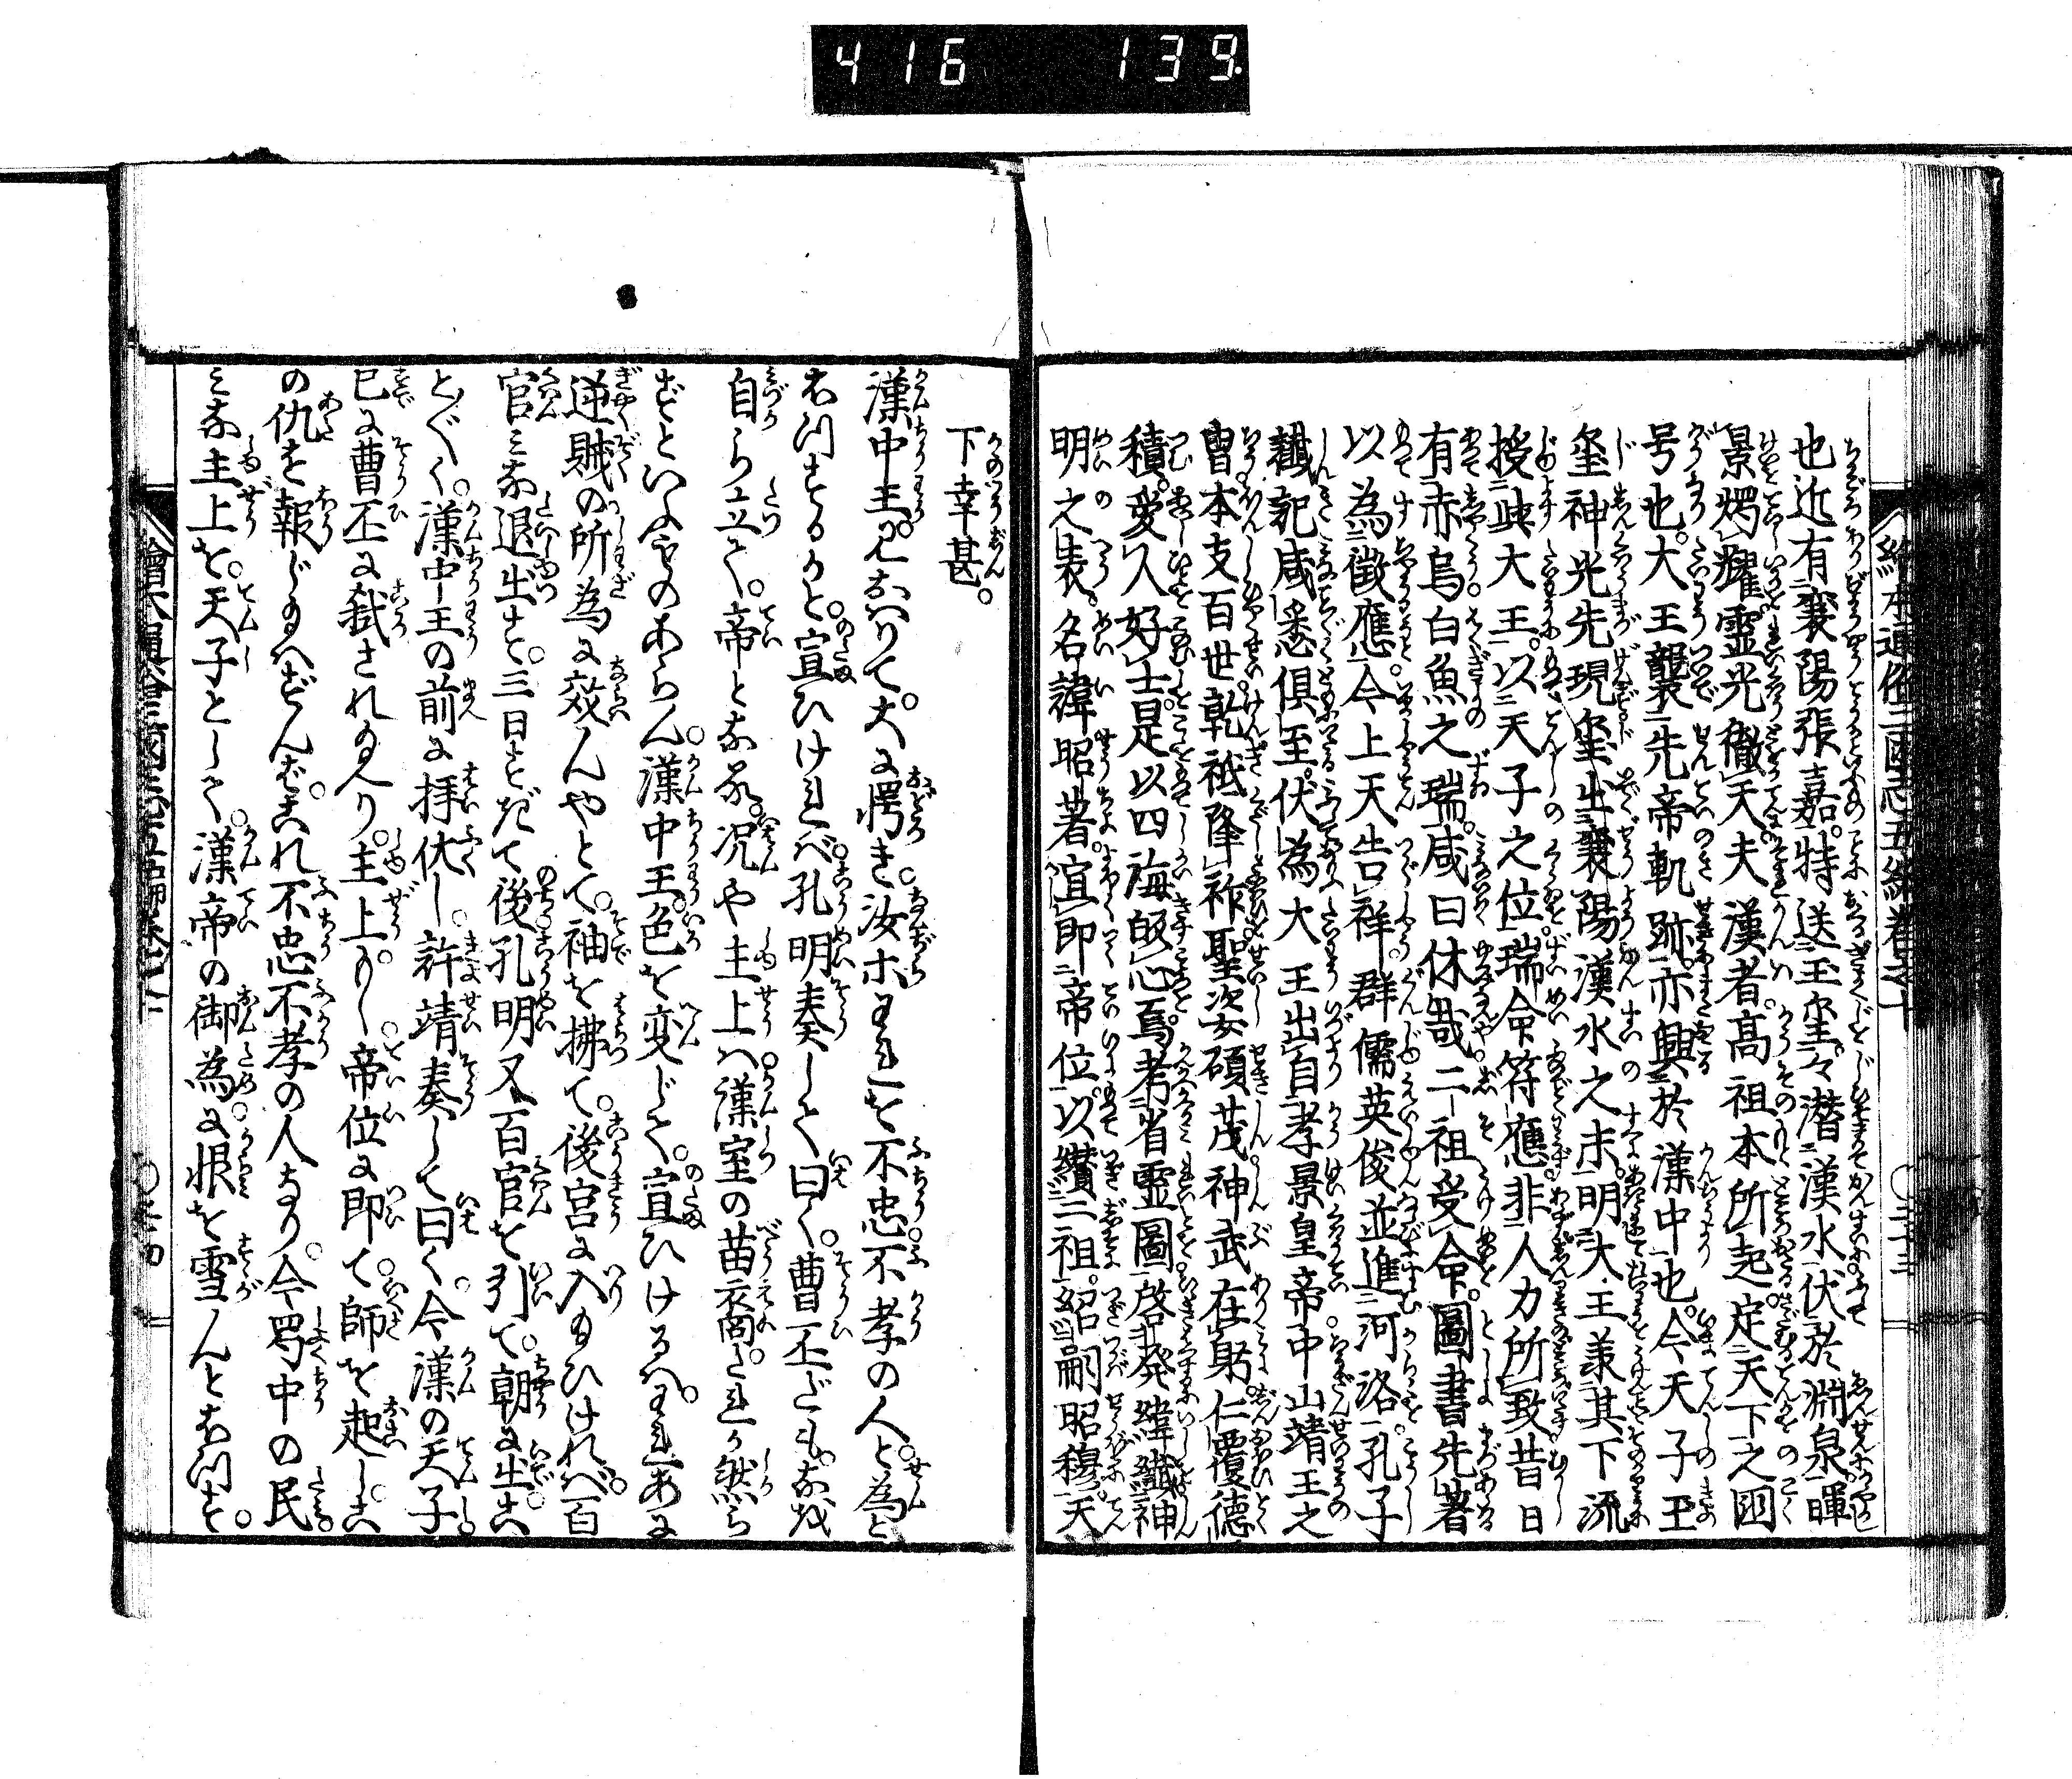 416 139
絵本通俗三国志五編巻之十
也近有襄陽張嘉特送玉璽々潜漢水伏於淵泉暉
景燭耀霊光徹天夫漢者高祖本所起定天下之国
号也大王襲先帝軌跡亦興於漢中也今天子玉
璽神光先現璽出襄陽漢水之末明大王羕其下流
授與大王以天子之位瑞命符應非人力所致昔日
有赤烏白魚之瑞咸曰休哉二祖受命圖書先著
以為徴應今上天告祥群儒英俊並進河洛孔子
讖記咸悉俱至伏為大王出自孝景皇帝中山靖王之
冑本支百世乾祇降祚聖姿碩茂神武在躬仁覆徳
積愛人好士是以四海皈心焉考省霊圖啓発緯讖神
明之表名諱昭著宜即帝位以纉二祖紹嗣昭穆天
下幸甚。
漢中王見おハりて。大に愕き。汝ホわれを不忠不孝の人と為と
おハするかと。宣ひけれバ。孔明奏して曰く。曹丕だも。なほ
自ら立て。帝となる。况や主上ハ漢室の苗裔。たれか然ら
ずといふものあらん。漢中王。色を変じて。宣ひけるハ。われあに
逆賊の所為に效んやとて。袖を拂て。後宮に入給ひけれバ。百
官みな退出す。三日すぎて後孔明又百官を引て。朝に出。こ
とごとく。漢中王の前に拝伏し。許靖奏して曰く。今漢の天子。
已に曹丕に弑され給へり。主上もし帝位に即て。師を起し。
の仇を報じ給ハずんバ。これ不忠不孝の人なり。今蜀中の民
みな主上を。天子として。漢帝の御為に恨を雪んとおハす。